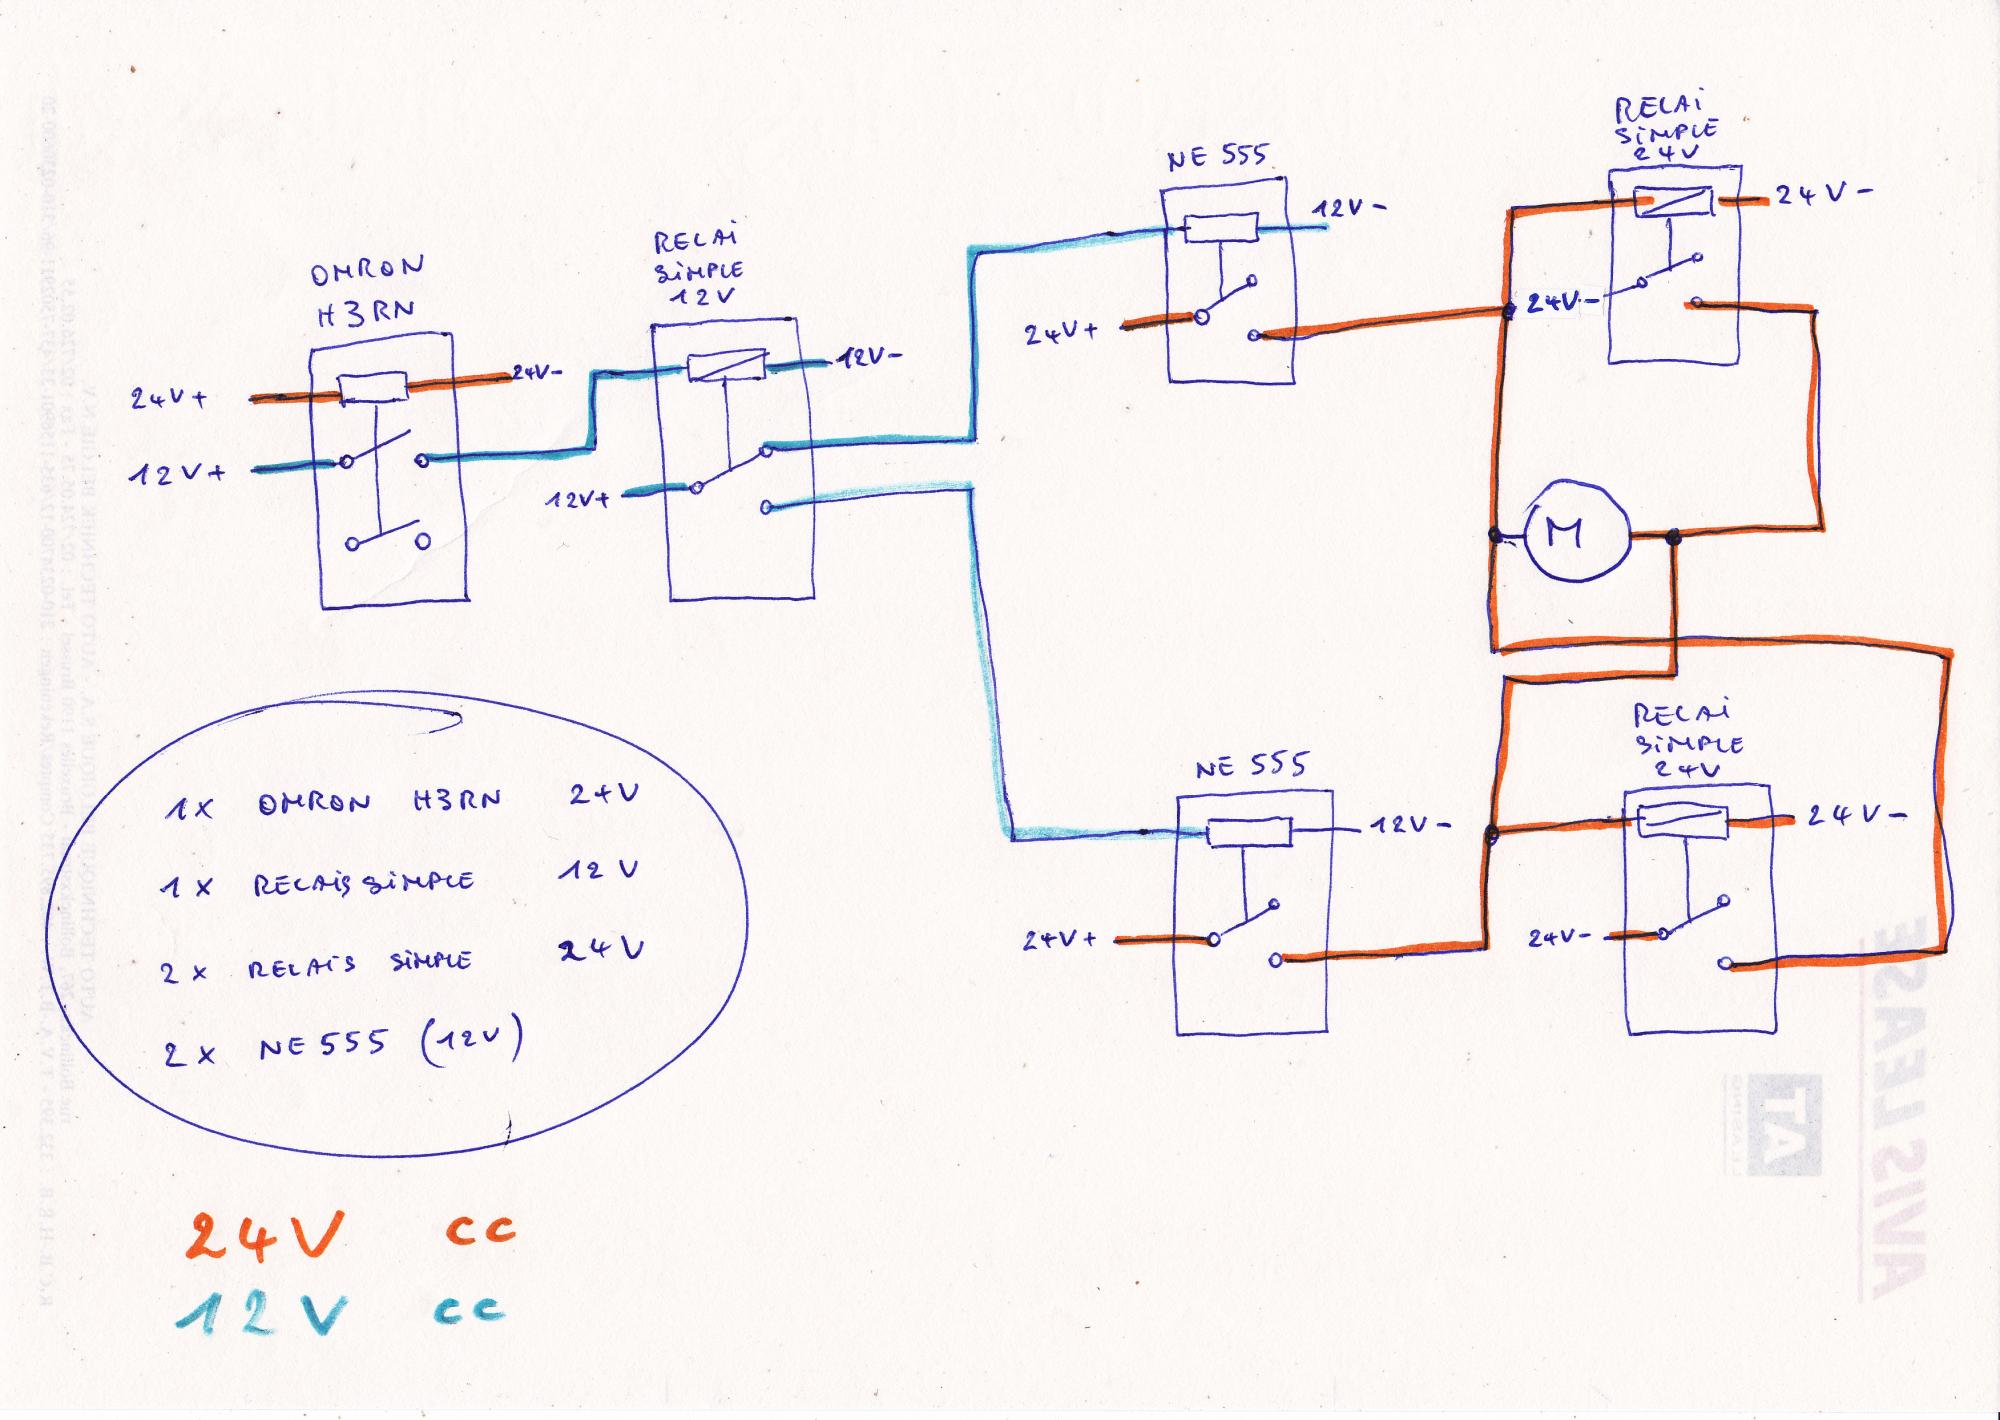 OMRON
H3RN
24V+
24V-
12V+
RELAi
SiMPLE
12V
12V-
12V+
NE 555
12V-
24V+
RELAi
SiMPLE
24V
24V-
24V-
M
NE 555
12V-
24V+
RELAi
SiMPLE
24V
24V-
24V-
1x OMRON H3RN 24V
1x RELAiS SiMPLE 12V
2x RELAiS SiMPLE 24V
2x NE 555 (12V)
24V cc
12V cc
AVIS LEASE